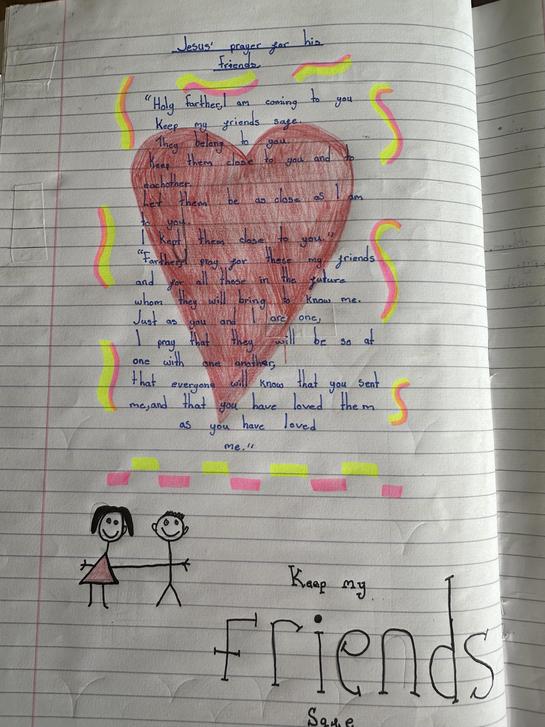 Jesus' prayer for his
friends
"Holy farther, I am coming to you
Keep my friends safe.
They belong to you.
Keep them close to you and to
eachother.
Let them be as close as I am
to you.
I kept them close to you."
"Farther I pray for these my friends
and for all those in the future
whom they will bring to know me.
Just as you and I are one,
I pray that they will be so at
one with one another,
that everyone will know that you sent
me, and that you have loved them
as you have loved
me."
Keep my
friends
Safe